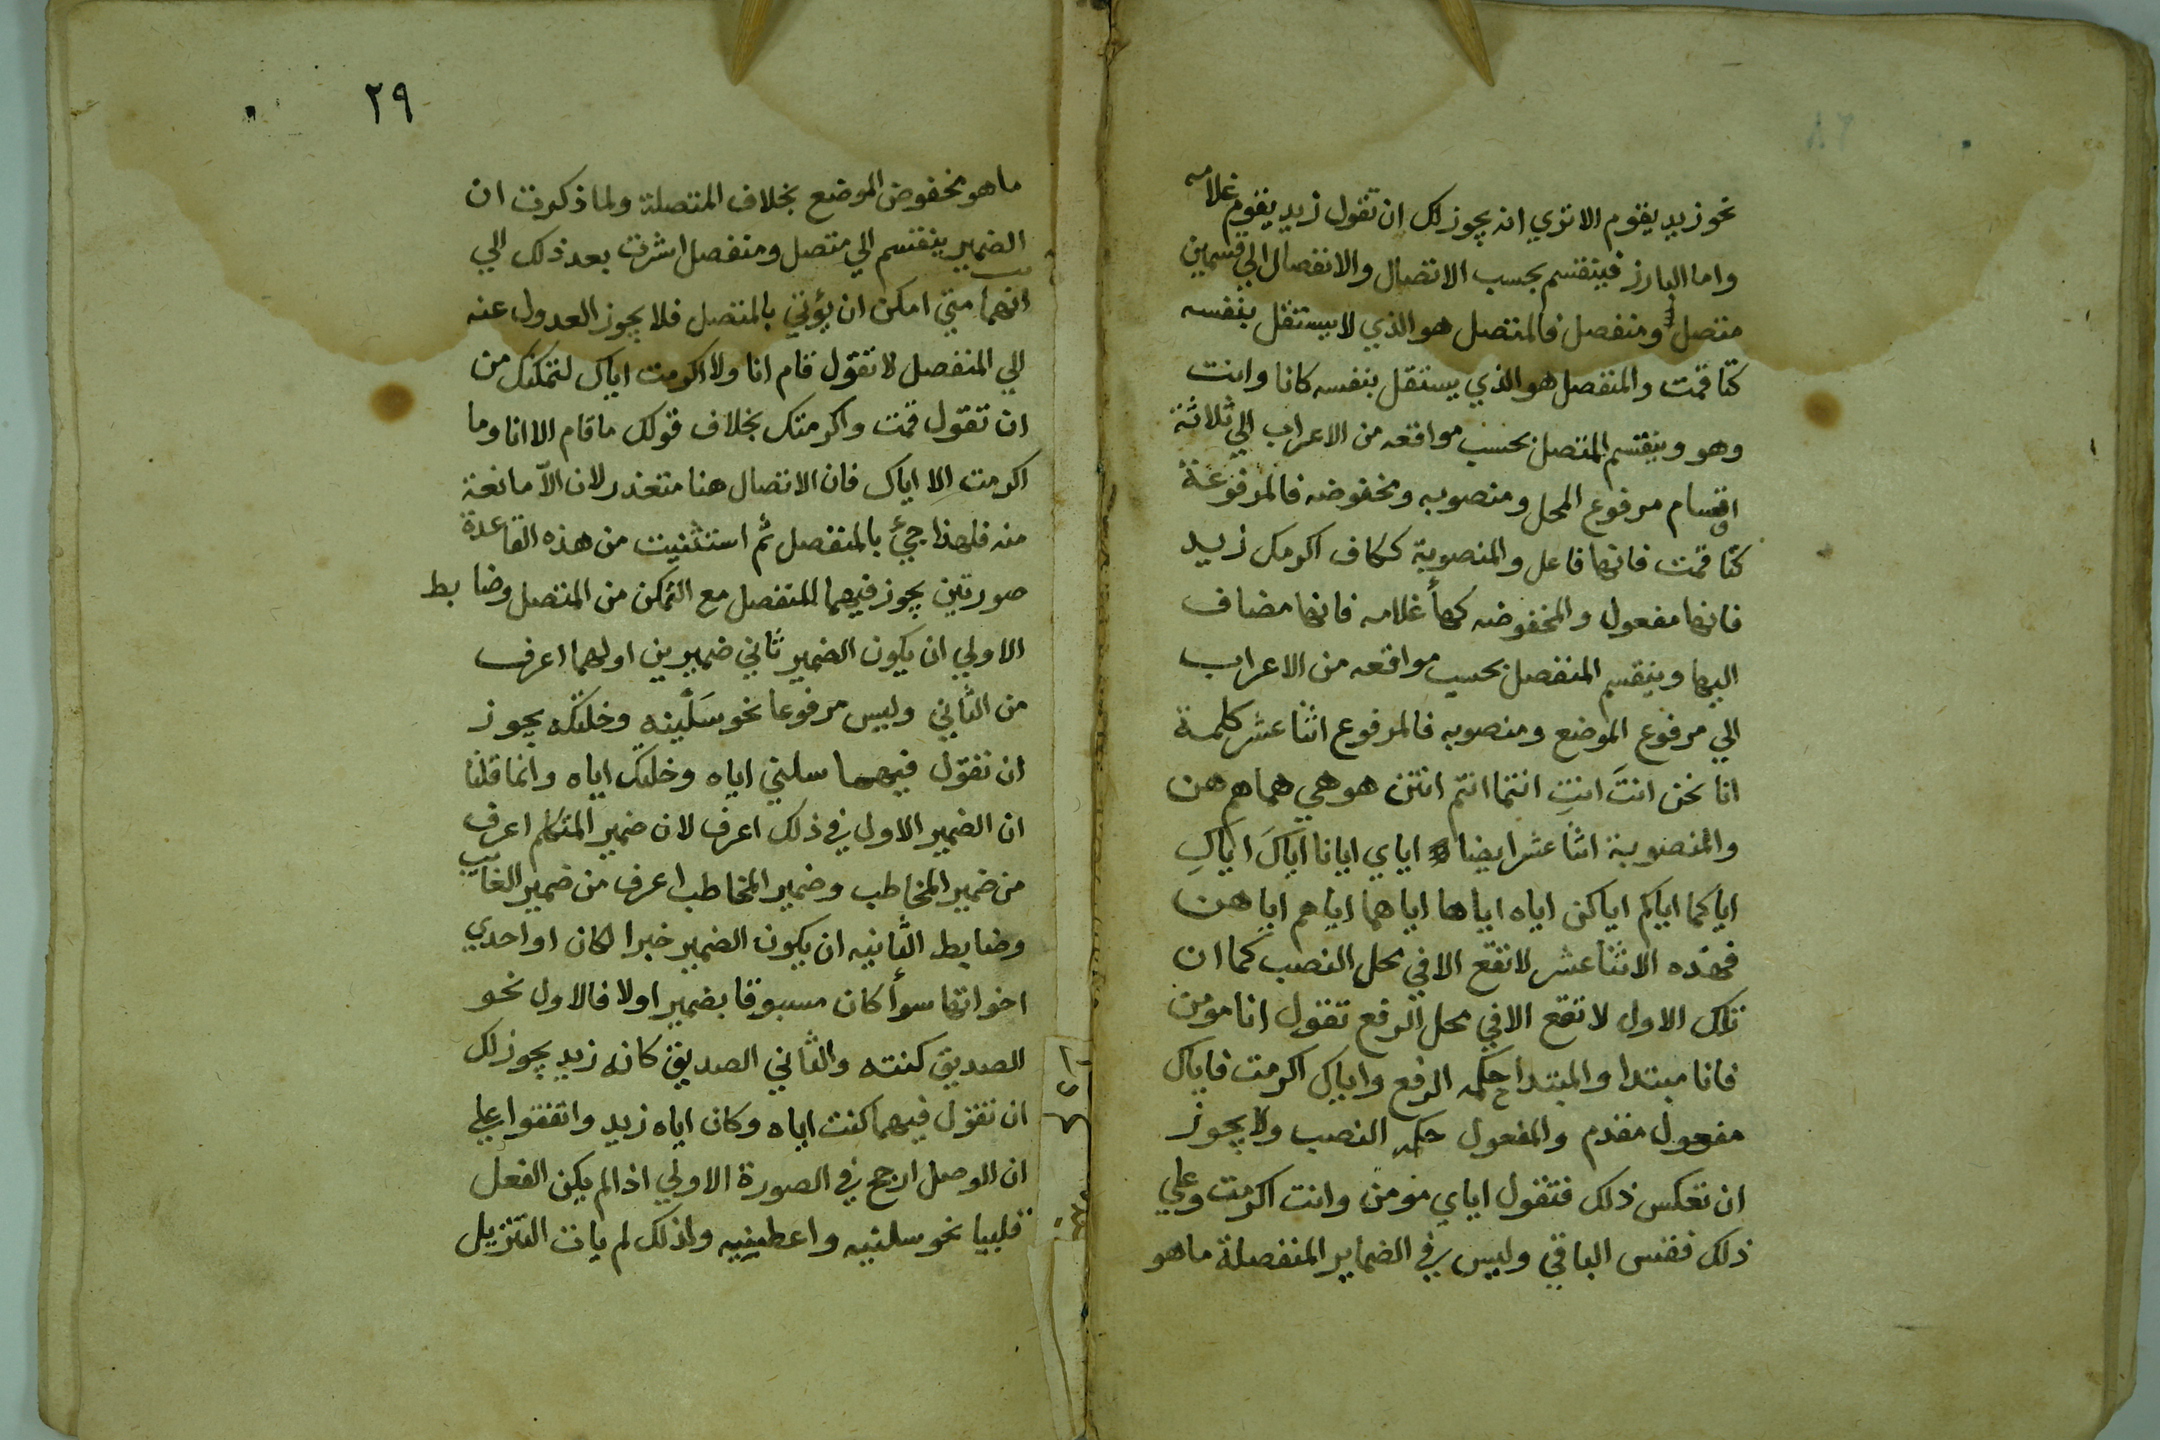 نحو زيد يقوم الا تري انه يجوز لك ان تقول زيد يقوم غلامه
واما البارز فينقسم بحسب الاتصال والانفصال الي قسمين
متصل ومنفصل فالمتصل هو الذي لا يستقل بنفسه
كتا قمت والمنفصل هو الذي يستقل بنفسه كانا وانت
وهو وينقسم المتصل بحسب مواقعه من الاعراب الي ثلاثة
اقسام مرفوع المحل ومنصوبه ومخفوضه فالمرفوعة
كتا قمت فانها فاعل والمنصوبة ككاف اكرمك زيد
فانها مفعول والمخفوضه كهأ غلامه فانها مضاف
اليها وينقسم المنفصل بحسب مواقعه من الاعراب
الي مرفوع الموضع ومنصوبه فالمرفوع اثنا عشر كلمة
انا نحن انتَ انتِ انتما انتم انتن هو هي هما هم هن
والمنصوبة اثنا عشر ايضا اياي ايانا اياكَ اياكِ
اياكما اياكم اياكن اياه اياها اياهما اياهم اياهن
فهذه الاثنا عشر لا تقع الا في محل النصب كما ان
تلك الاول لا تقع الا في محل الرفع تقول انا مومن
فانا مبتدا والمبتدا حكمه الرفع واياك اكرمت فاياك
مفعول مقدم والمفعول حكمه النصب ولا يجوز
ان تعكس ذلك فتقول اياي مومن وانت اكرمت وعلي
ذلك فقس الباقي وليس في الضماير المنفصلة ما هو
٢٩
ما هو مخفوض الموضع بخلاف المتصلة ولما ذكرت ان
الضمير ينقسم الي متصل ومنفصل اشرت بعد ذلك الي
انهما متي امكن ان يؤتي بالمتصل فلا يجوز العدول عنه
الي المنفصل لا تقول قام انا ولا اكرمت اياك لتمكنك من
ان تقول قمت واكرمتك بخلاف قولك ما قام الا انا وما
اكرمت الا اياك فان الاتصال هنا متعذر لان الّا مانعة
منه فلهذا جيئ بالمنفصل ثم استثنيت من هذه القاعدة
صورتين يجوز فيهما للمنفصل مع التمكن من المتصل وضابط
الاولي ان يكون الضمير ثاني ضميرين اولهما اعرف
من الثاني وليس مرفوعا نحو سَلْنيه وخلتكه يجوز
ان تقول فيهما سلني اياه وخلتك اياه وانما قلنا
ان الضمير الاول في ذلك اعرف لان ضمير المتكلم اعرف
من ضمير المخاطب وضمير المخاطب اعرف من ضمير الغائب
وضابط الثانيه ان يكون الضمير خبرا لكان او احدي
اخواتها سوأ كان مسبوقا بضمير اولا فالاول نحو
الصديق كنته والثاني الصديق كانه زيد يجوز لك
ان تقول فيهما كنت اياه وكان اياه زيد واتفقوا علي
ان الوصل ارجح في الصورة الاولي اذا لم يكن الفعل
قلبيا نحو سلنيه واعطينيه ولذلك لم يات التنزيل